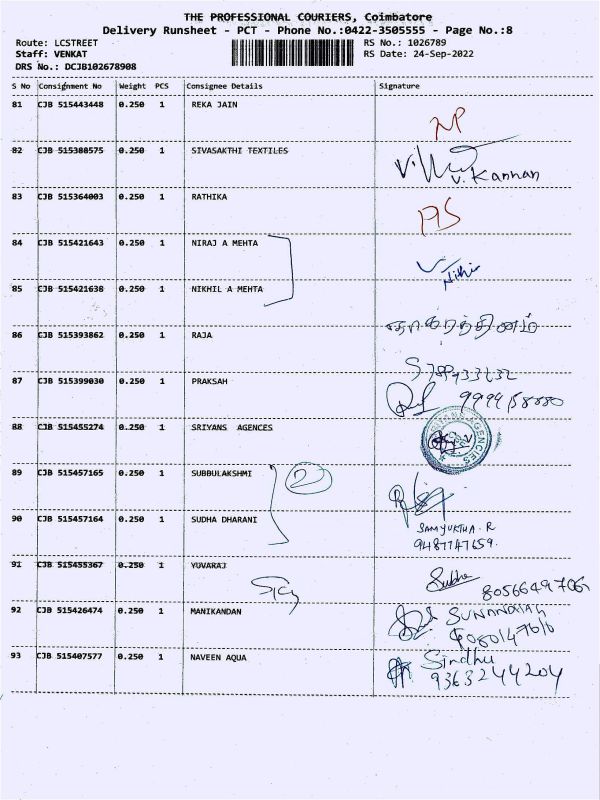 THE PROFESSIONAL COURIERS, Coimbatore
Delivery Runsheet - PCT - Phone No.:0422-3505555 - Page No.:8
Route: LCSTREET
RS No.: 1026789
Staff: VENKAT
RS Date: 24-Sep-2022
DRS No.: DCJB102678908
S No Consignment No Weight PCS Consignee Details Signature
81 CJB 515443448 0.250 1 REKA JAIN
82 CJB 515388575 0.250 1 SIVASAKTHI TEXTILES
V. Kannan
83 CJB 515364003 0.250 1 RATHIKA
84 CJB 515421643 0.250 1 NIRAJ A MEHTA
85 CJB 515421638 0.250 1 NIKHIL A MEHTA
86 CJB 515393862 0.250 1 RAJA
87 CJB 515399030 0.250 1 PRAKSAH
88 CJB 515455274 0.250 1 SRIYANS AGENCES
89 CJB 515457165 0.250 1 SUBBULAKSHMI
2
90 CJB 515457164 0.250 1 SUDHA DHARANI
SAMYUKTHA. R
9487747659.
91 CJB 515455367 0.250 1 YUVARAJ
Subha
8056649706
92 CJB 515426474 0.250 1 MANIKANDAN
93 CJB 515407577 0.250 1 NAVEEN AQUA
Sindhu
9363244204